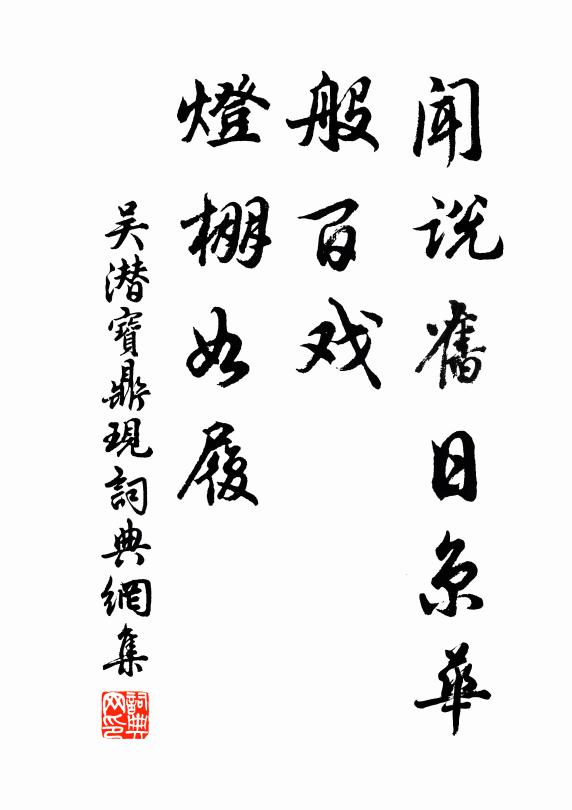 闻说舊日京華
般百戏
燈棚如履
吴潜寶鼎現詞典網集
詞典网印